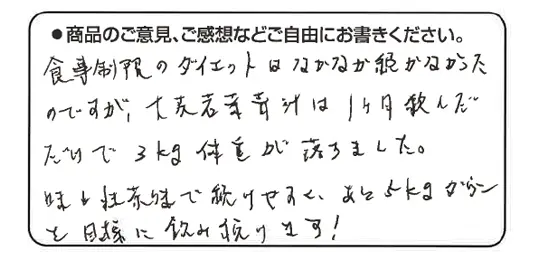 ●商品のご意見、ご感想などご自由にお書きください。
食事制限のダイエットはなかなか続かなかった
のですが、大麦若葉青汁は1ヶ月飲んだ
だけで3kg体重が落ちました。
味も抹茶味で続けやすく、あと5kgダウン
を目標に飲み続けます!